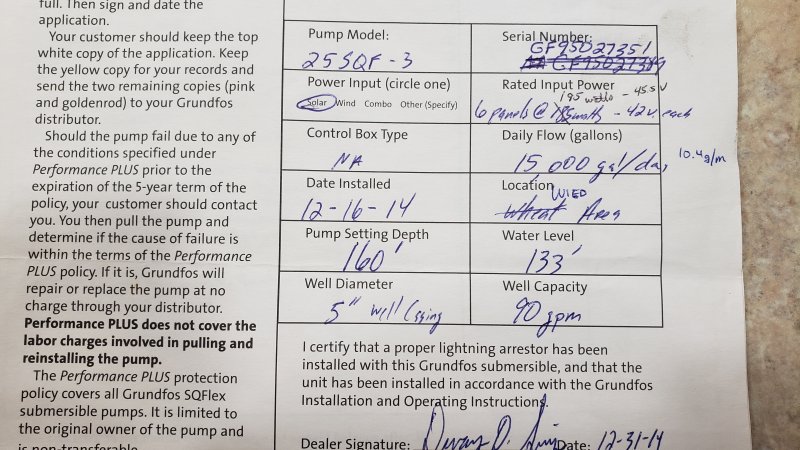 full. Then sign and date the
application.
Your customer should keep the top
white copy of the application. Keep
the yellow copy for your records and
send the two remaining copies (pink
and goldenrod) to your Grundfos
distributor.
Should the pump fail due to any of
the conditions specified under
Performance PLUS prior to the
expiration of the 5-year term of the
policy, your customer should contact
you. You then pull the pump and
determine if the cause of failure is
within the terms of the Performance
PLUS policy. If it is, Grundfos will
repair or replace the pump at no
charge through your distributor.
Performance PLUS does not cover the
labor charges involved in pulling and
reinstalling the pump.
The Performance PLUS protection
policy covers all Grundfos SQFlex
submersible pumps. It is limited to
the original owner of the pump and
is non-transferable
Pump Model:
25 SQF - 3
Serial Number:
GF95D27351
Power Input (circle one)
Solar Wind Combo Other (Specify)
Rated Input Power
195 watts - 45.5 V
6 panels @ 185 watts - 42v. each
Control Box Type
NA
Daily Flow (gallons)
15,000 gal/day 10.4 g/m
Date Installed
12-16-14
Location
WIED
Wheat Area
Pump Setting Depth
160'
Water Level
133'
Well Diameter
5" well Casing
Well Capacity
90 gpm
I certify that a proper lightning arrestor has been
installed with this Grundfos submersible, and that the
unit has been installed in accordance with the Grundfos
Installation and Operating Instructions.
Dealer Signature: Date: 12-31-14